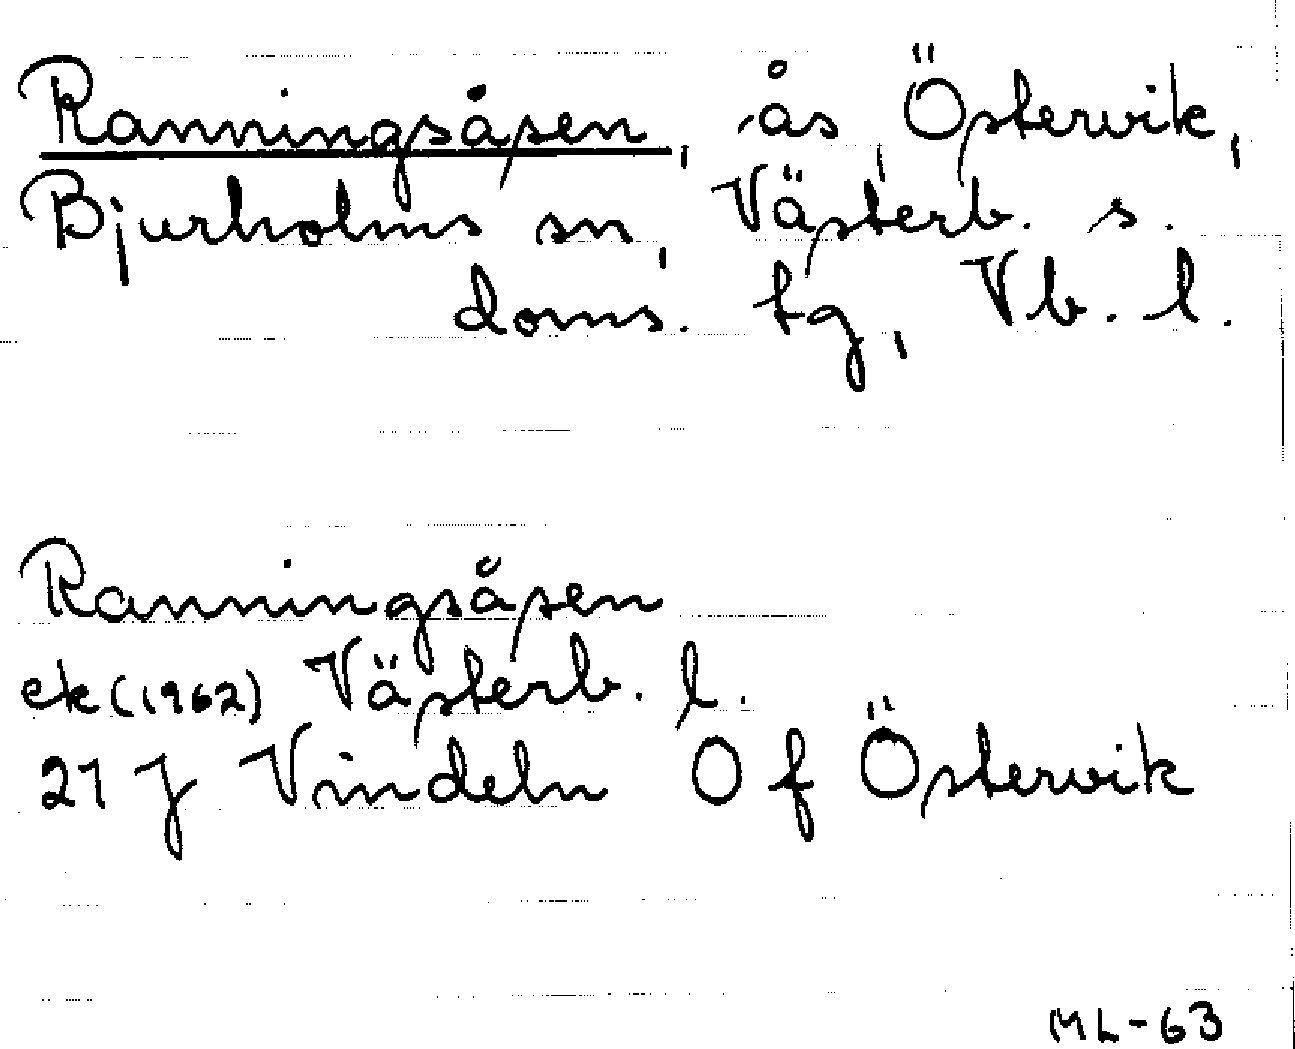 Ranningsåsen, ås, Östervik,
Bjurholms sn, Västerb. s.
doms. tg, Vb. l.
Ranningsåsen
ek (1962) Västerb. l.
21 J Vindeln O f Östervik
ML-63